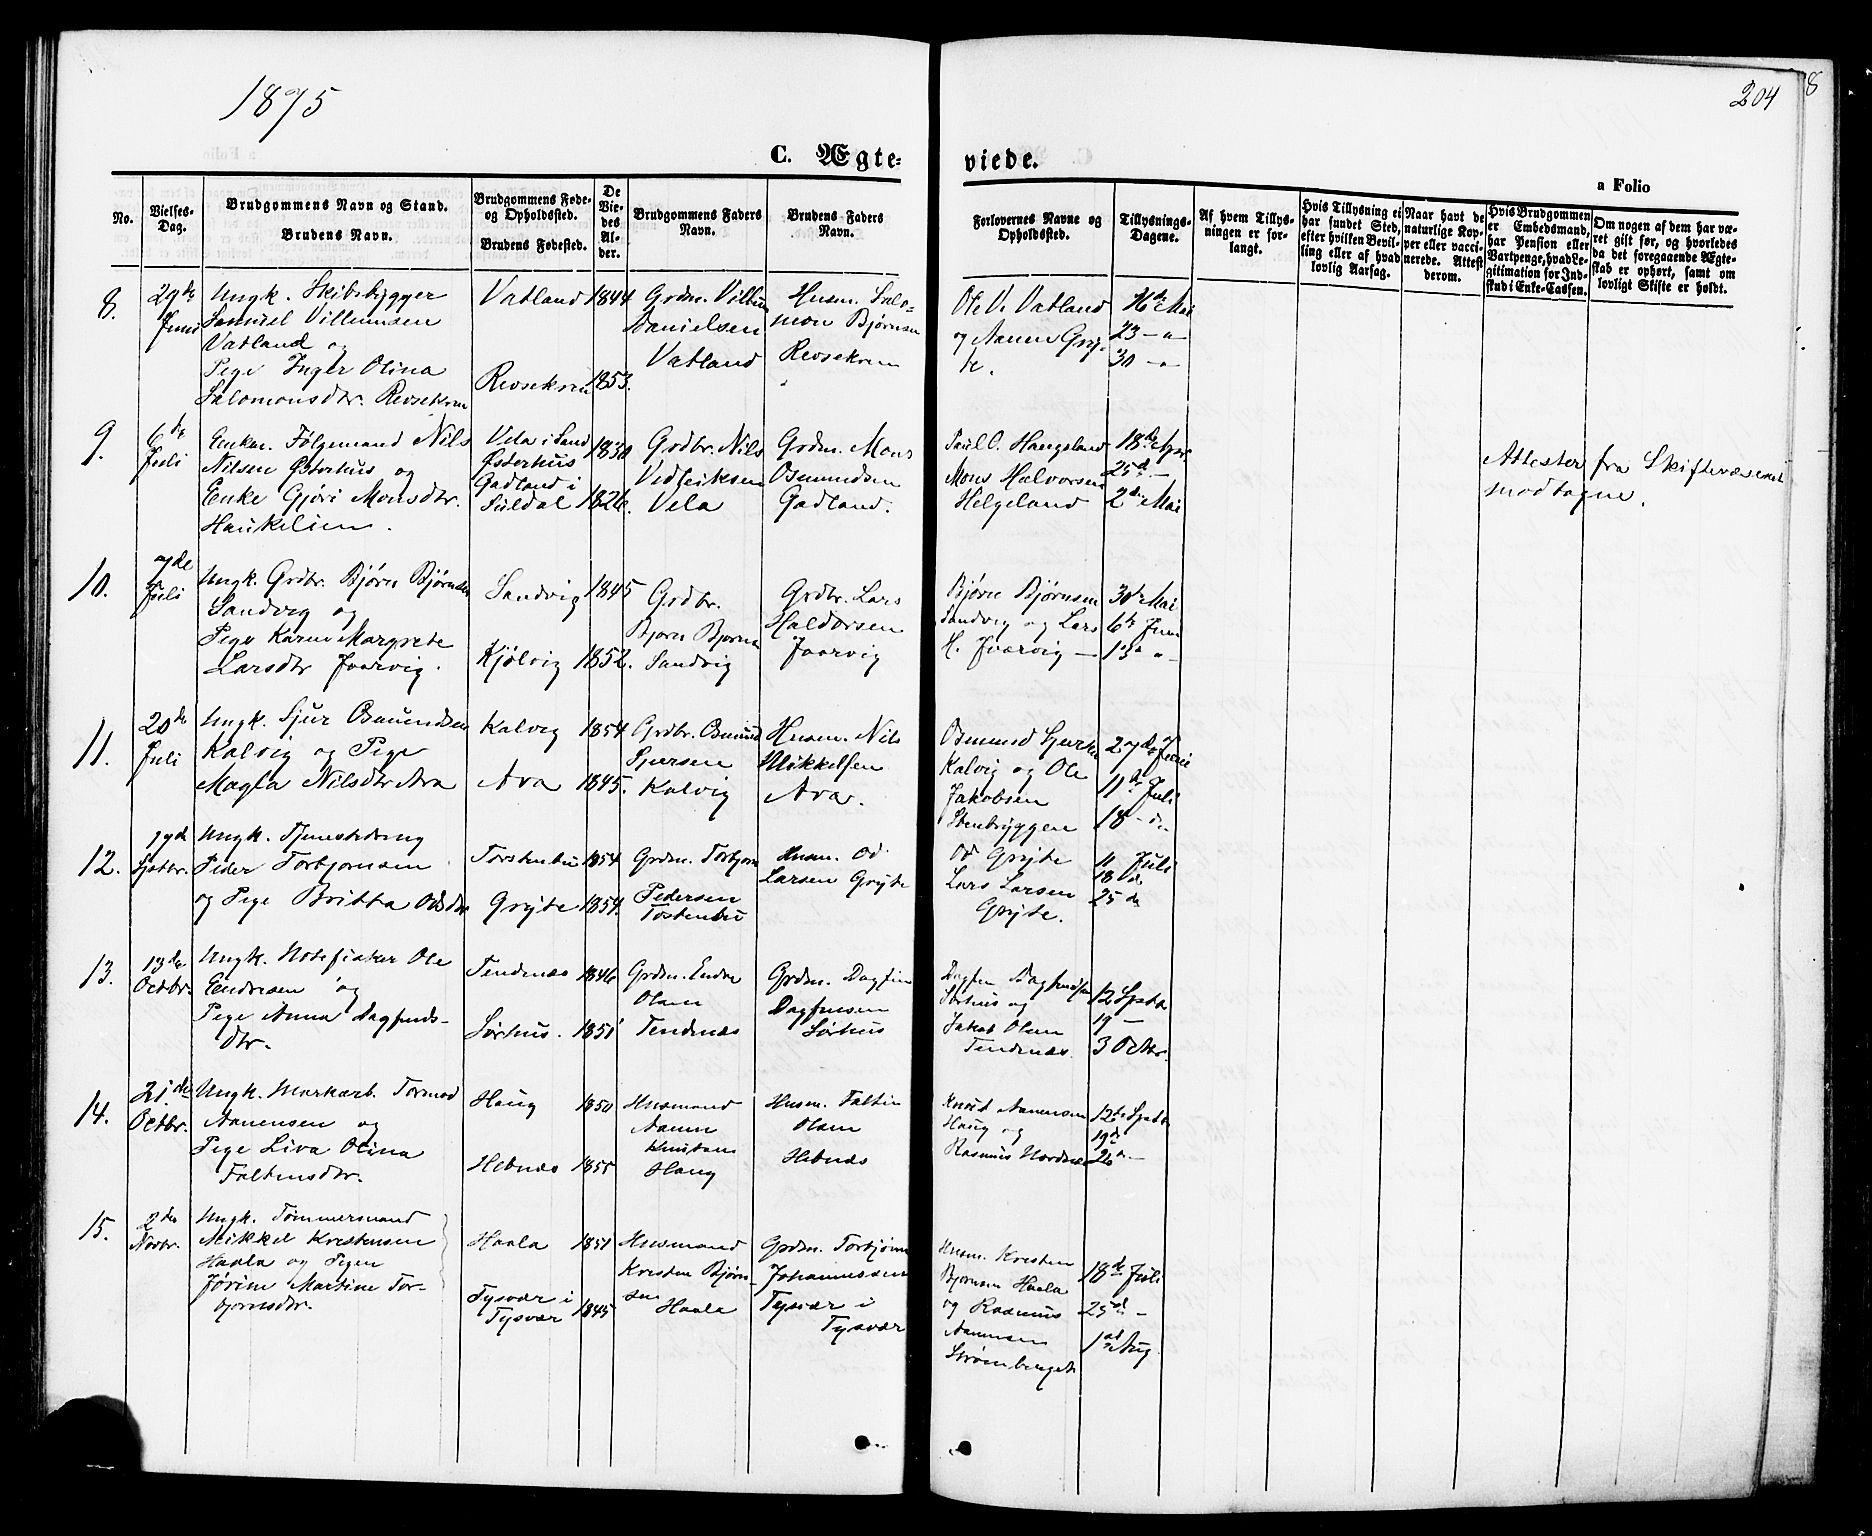 1875
204
8
C. Ægte-
viede.
a Folio
No.
Vielses-
Dag.
Brudgommens Navn og Stand.
Brudens Navn.
Brudgommens Føde-
og Opholdssted.
Brudens Fødested.
De
Vie-
des
Al-
der.
Brudgommens Faders
Navn.
Brudens Faders
Navn.
Forlovernes Navne og
Opholdssted.
Tillysnings-
Dagene.
Af hvem Tillys-
ningen er for-
langt.
Hvis Tillysning ei
har fundet Sted,
efter hvilken Bevil-
ling eller af hvad
lovlig Aarsag.
Naar havt de
naturlige Kop-
per eller vacci-
nerede. Attest
derom.
Hvis Brudgommen
er Embedsmand,
har Pension eller
Vartpenge, hvad Le-
gitimation for Ind-
skud i Enke-Cassen.
Om nogen af dem har væ-
ret gift før, og hvorledes
da det foregaaende Ægte-
skab er ophørt, samt om
lovligt Skifte er holdt.
8.
29de
Juni
Ungk. Skibsbygger
Samuel Villumsen
Vatland og
Pige Inger Olina
Salomonsdtr. Revsekren
Vatland
Revsekren
1844
1853.
Grdm. Villum
Danielsen
Vatland
Husm. Salo-
mon Bjørnsen
Revsekren
Ole V. Vatland
og Aanen Gryt-
te.
16de Mai
23 — "
30 — "
9.
6te
Juli
Enkem. Følgemand Nils
Nilsen Østerhus og
Enke Gjøri Monsdtr.
Haukelien.
Vela i Sand
Østerhus
Gadland i
Suldal
1830
1826.
Grdbr. Nils
Vela
Grdm. Mons
Osmundsen
Gadland.
Paul O. Haugeland
Mons Halvorsen
Helgeland
18de Apr.
25de —
2den Mai
Attester fra Skiftevæsenet
modtagne.
10.
7de
Juli
Ungk. Grdbr. Bjørn Bjørnsen
Sandvig og
Pige Karen Margrete
Larsdtr Jvarvig.
Sandvig
Kjølvig
1845
1852.
Grdbr.
Bjørn Bjørnsen
Sandvig
Grdbr. Lars
Haldorsen
Jvarvig
Bjørn Bjørnsen
Sandvig og Lars
H. Jvarvig —
30te Mai
6te Juni
13de "
11.
20de
Juli
Ungk. Sjur Osmundsen
Kalvig og Pige
Magla Nilsdtr Ava
Kalvig
Ava
1854
1845.
Grdbr. Osmund
Sjursen
Kalvig
Husm. Nils
Mikkelsen
Ava.
Osmund Sjursen
Kalvig og Ole
Jakobsen
Stenbryggen
27de Juni
11te Juli
18 — de
12.
17de
Septbr.
Ungk. Tjenestedreng
Peder Torbjørnsen
og Pige Britta Odsdtr
Torstenbu
Gryte
1854
1854.
Grdm. Torbjørn
Pedersen
Tostenbu
Husm. Od
Larsen Gryte
Od Gryte
Lars Larsen
Gryte.
11 Juli
18 de
25 de
13.
13de
Octbr.
Ungk. Notefisker Ole
Endresen og
Pige Anna Dagfinds-
dtr.
Tendenæs
Sørhus.
1846
1851
Grdm. Endre
Olsen
Tendenæs
Grdm. Dagfin
Dagfinsen
Sørhus
Dagfin Dagfindsen
Sørhus og
Jakob Olsen
Tendenæs.
12 Septbr
19 —
3 Octbr.
14.
21de
Octbr.
Ungk. Markarb. Tormod
Aanensen og
Pige Liva Olina
Faltinsdtr.
Haug
Hebnæs
1850
1855
Husmand
Aanen
Knutsen
Haug
Husm. Faltin
Olsen
Hebnæs
Knud Aanensen
Haug og
Rasmus Nordnæs
12te Septbr
19de
26 " —
15.
2den
Novbr.
Ungk. Tømmermand
Mikkel Kristensen
Haala og Pigen
Jørine Martine Tor-
bjørnsdtr.
Haala
Tysvær i
Tysvær
1851
1845
Husmand
Kristen Bjørn-
sen Haala
Grdm. Torbjørn
Johannessen
Tysvær i
Tysvær
Husm. Kristen
Bjørnsen Haala
og Rasmus
Aanensen
Strømberget
18de Juli
25de —
1ste Aug.